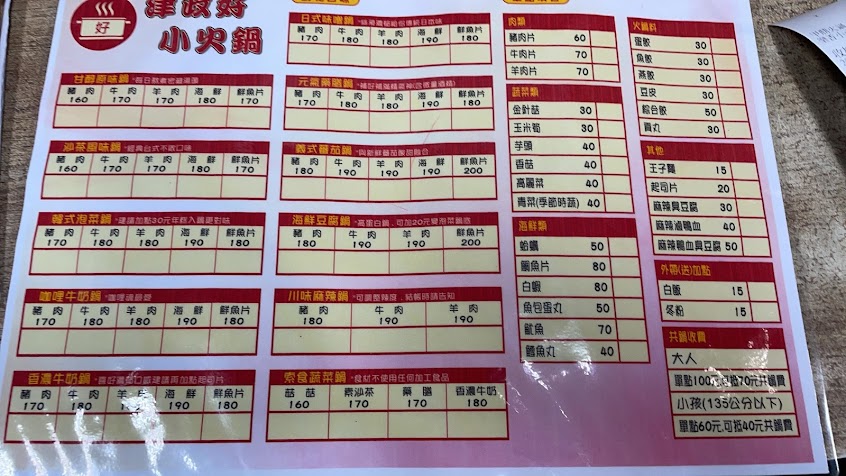 好
津設好
小火鍋
甘醇原味鍋
豬肉 牛肉 羊肉 海鮮 鮮魚片
160 170 170 180 170
沙茶風味鍋 *經典台式不敗口味
豬肉 牛肉 羊肉 海鮮 鮮魚片
160 170 170 180 180
韓式泡菜鍋 *建議加點30元年糕入鍋更對味
豬肉 牛肉 羊肉 海鮮 鮮魚片
170 180 180 190 180
咖哩牛奶鍋
豬肉 牛肉 羊肉 海鮮 鮮魚片
170 180 180 190 180
香濃牛奶鍋 *喜好濃郁口感建議再加點起司片
豬肉 牛肉 羊肉 海鮮 鮮魚片
170 180 180 190 180
日式味噌鍋
豬肉 牛肉 羊肉 海鮮 鮮魚片
170 180 180 190 180
元氣藥膳鍋
豬肉 牛肉 羊肉 海鮮 鮮魚片
170 180 180 190 180
義式番茄鍋 *與新鮮番茄酸甜融合
豬肉 牛肉 羊肉 海鮮 鮮魚片
180 190 190 190 200
海鮮豆腐鍋 *高蛋白鍋,可加20元變泡菜鍋底
豬肉 牛肉 羊肉 鮮魚片
180 190 190 200
川味麻辣鍋 *可調整辣度,結帳時請告知
豬肉 牛肉 羊肉
180 190 190
素食蔬菜鍋 *食材不使用任何加工食品
菇菇 素沙茶 藥膳 香濃牛奶
160 170 170 180
肉類
豬肉片 60
牛肉片 70
羊肉片 70
蔬菜類
金針菇 30
玉米筍 30
芋頭 40
香菇 40
高麗菜 40
青菜(季節時蔬) 40
海鮮類
蛤蠣 50
鯛魚片 80
白蝦 80
魚包蛋丸 50
魷魚 70
鱈魚丸 40
火鍋料
蛋餃 30
魚餃 30
燕餃 30
豆皮 30
綜合餃 50
貢丸 30
其他
王子麵 15
起司片 20
麻辣臭豆腐 40
麻辣滷鴨血 40
麻辣鴨血臭豆腐 50
外帶(送)加點
白飯 15
冬粉 15
共鍋收費
大人
單點100元,可抵70元共鍋費
小孩(135公分以下)
單點60元,可抵40元共鍋費